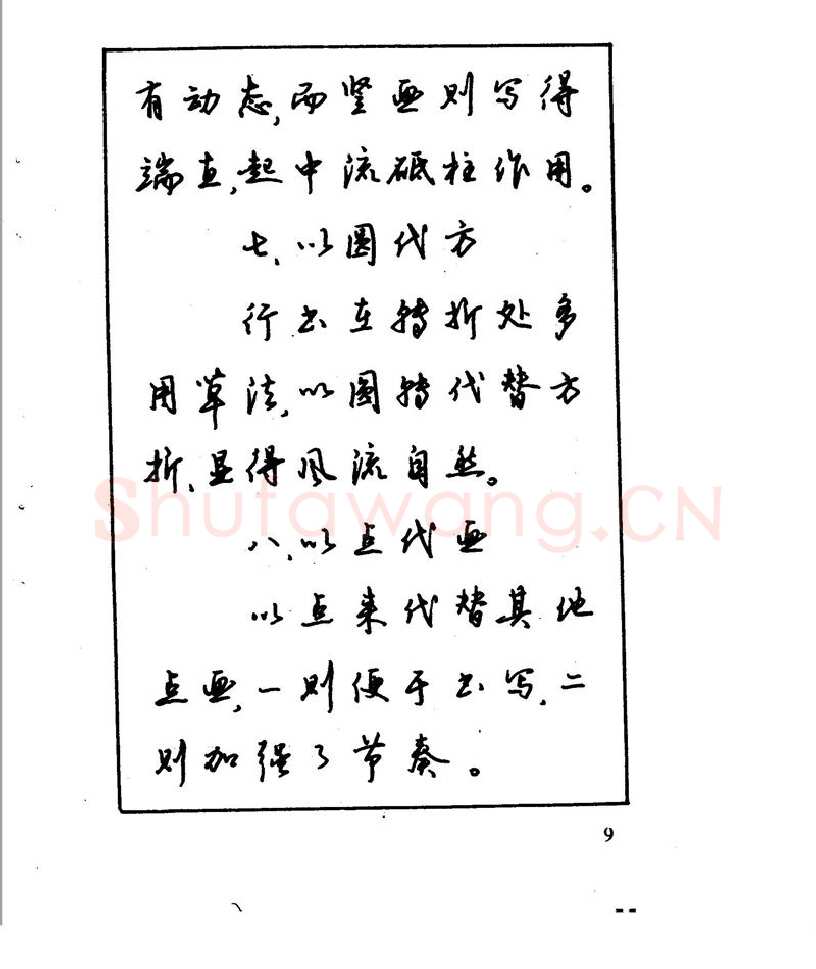 有动态,而竖画则写得
端直,起中流砥柱作用。
七、以圆代方
行书在转折处多
用草法,以圆转代替方
折、显得风流自然。
Shufawang.CN
八、以点代画
以点来代替其他
点画,一则便于书写,二
则加强了节奏。
9